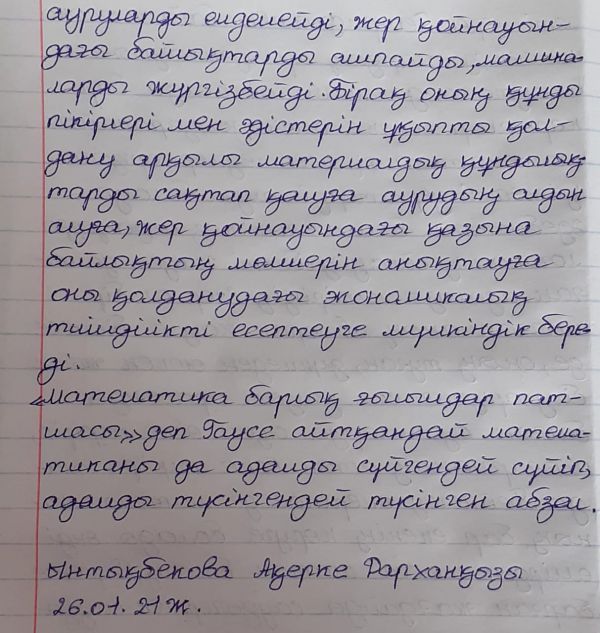 ауруларды емдемейді, жер қойнауын-
дағы байлықтарды ашпайды, машина-
ларды жүргізбейді. Бірақ оның құнды
пікірлері мен әдістерін ұқыпты қол-
дану арқылы материалдық құндылық
тарды сақтап қалуға аурудың алдын
алуға, жер қойнауындағы қазына
байлықтың мөлшерін анықтауға
оны қолданудағы экономикалық
тиімділікті есептеуге мүмкіндік бере
ді.
«математика барлық ғылымдар пат-
шасы» деп Гаусс айтқандай матема-
тиканы да адамды сүйгендей сүйіп,
адамды түсінгендей түсінген абзал.
Ынтықбекова Ақерке Дарханқызы
26.01. 21ж.